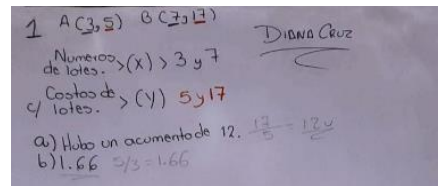 1 A(3,5) B(7,17)
DIANA CRUZ
Numeros de lotes. > (x) > 3 y 7
Costos de c/ lotes. > (y) 5 y 17
a) Hubo un acumento de 12. 17 - 5 = 12
b) 1.66 5/3 = 1.66